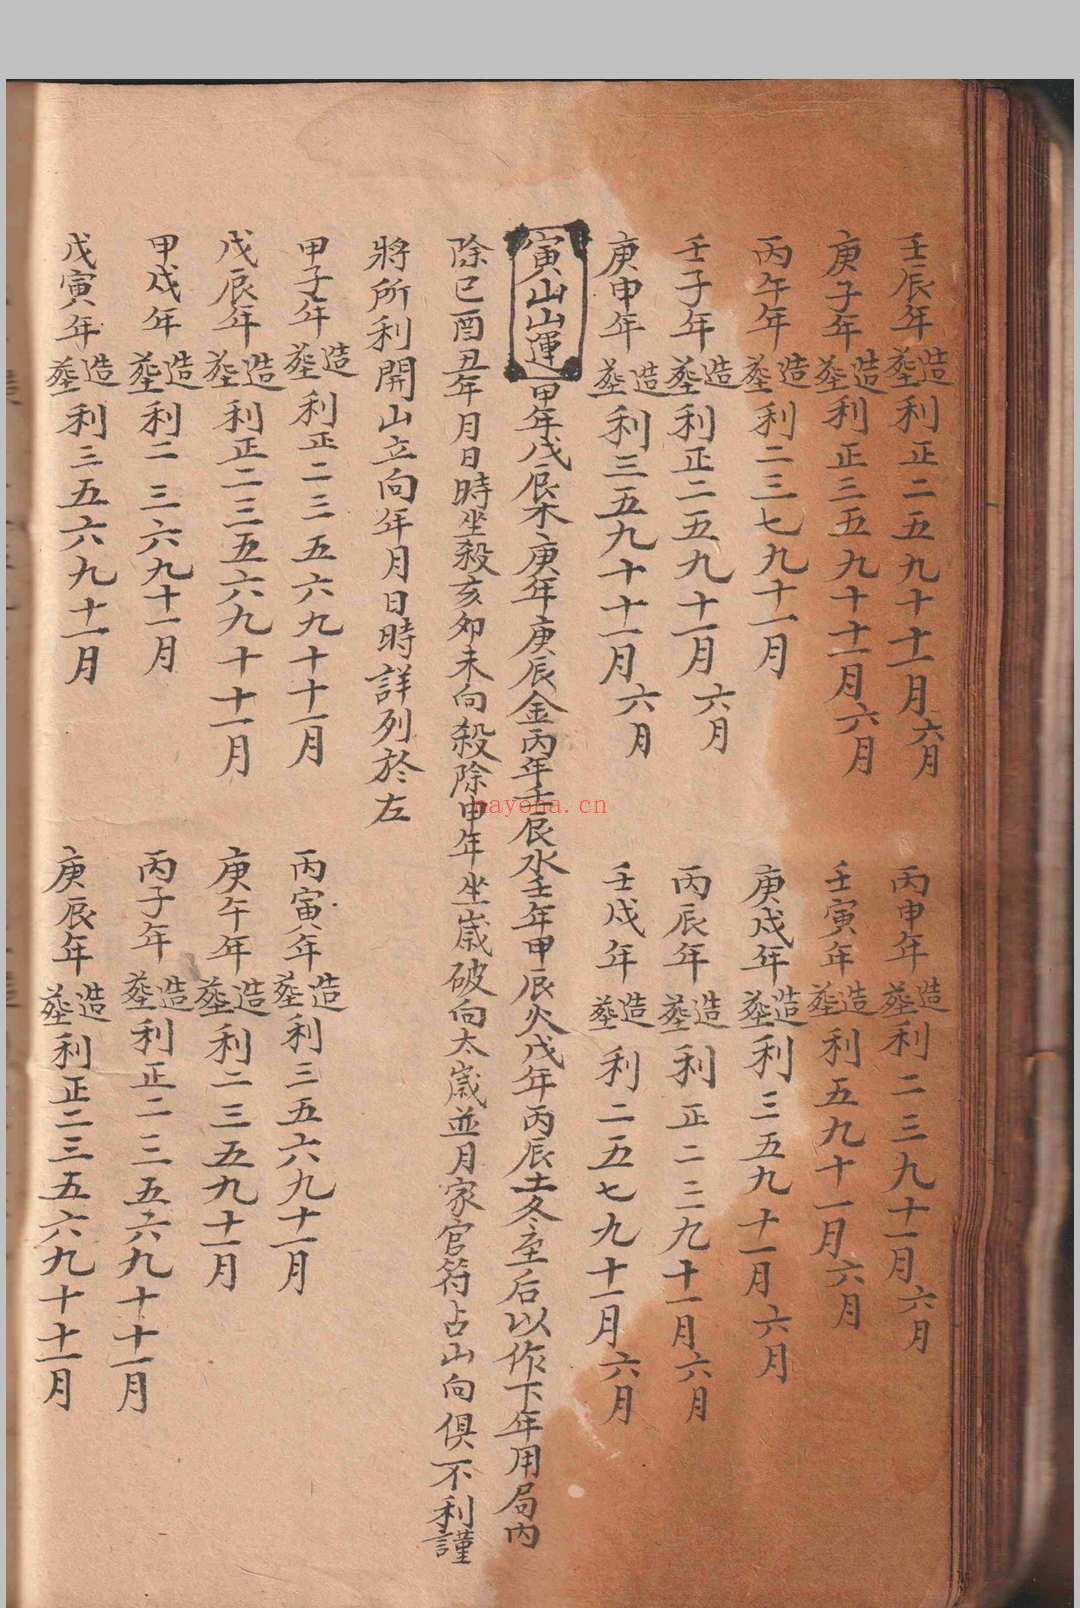 壬辰年造葬利正二五九十十一月六月　丙申年造葬利二三九十一月六月
庚子年造葬利正三五九十十一月六月　壬寅年造葬利五九十一月六月
丙午年造葬利二三七九十一月　庚戌年造葬利三五九十一月六月
壬子年造葬利正二五九十一月六月　丙辰年造葬利正二三九十一月六月
庚申年造葬利三五九十十一月六月　壬戌年造葬利二五七九十一月六月
寅山山運甲年戊辰木庚年庚辰金丙年壬辰水壬年甲辰火戊年丙辰土冬至后以作下年用局內
除巳酉丑年月日時坐殺亥卯未向殺除申年坐歲破向太歲並月家官符占山向俱不利謹
將所利開山立向年月日時詳列於左
甲子年造葬利正二三五六九十十一月　丙寅年造葬利三五六九十一月
戊辰年造葬利正二三五六九十十一月　庚午年造葬利二三五九十一月
甲戌年造葬利二三六九十一月　丙子年造葬利正二三五六九十十一月
戊寅年造葬利三五六九十一月　庚辰年造葬利正二三五六九十十一月
nayona.cn